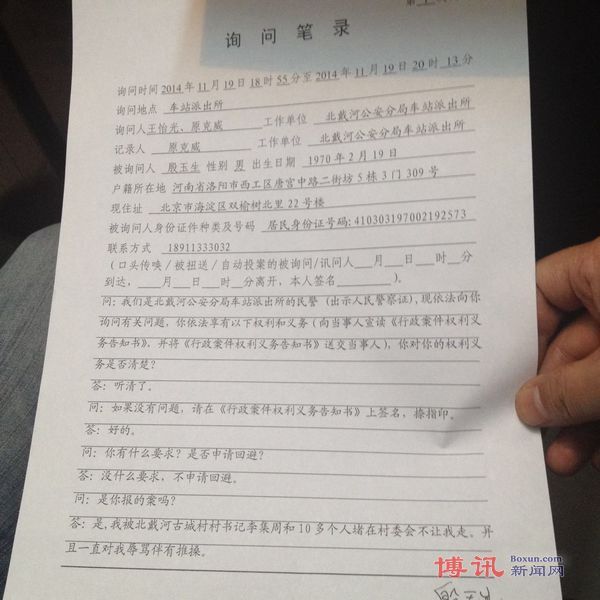 第1
询问笔录
询问时间 2014年11月19日18时55分至2014年11月19日20时13分
询问地点 车站派出所
询问人王怡光、原克威 工作单位 北戴河公安分局车站派出所
记录人 原克威 工作单位 北戴河公安分局车站派出所
被询问人 殷玉生 性别 男 出生日期 1970年2月19日
户籍所在地 河南省洛阳市西工区唐宫中路二街坊5栋3门309号
现住址 北京市海淀区双榆树北里22号楼
被询问人身份证件种类及号码 居民身份证号码:410303197002192573
联系方式 18911333032
(口头传唤/被扭送/自动投案的被询问/讯问人__月__日__时__分
到达,__月__日__时__分离开,本人签名______)。
问:我们是北戴河公安分局车站派出所的民警(出示人民警察证),现依法向你
询问有关问题,你依法享有以下权利和义务(向当事人宣读《行政案件权利义
务告知书》,并将《行政案件权利义务告知书》送交当事人),你对你的权利义
务是否清楚?
答:听清了。
问:如果没有问题,请在《行政案件权利义务告知书》上签名,捺指印。
答:好的。
问:你有什么要求?是否申请回避?
答:没什么要求,不申请回避。
问:是你报的案吗?
答:是,我被北戴河古城村村书记李集周和10多个人堵在村委会不让我走。并
且一直对我辱骂伴有推搡。
博讯 Boxun.com 新闻网